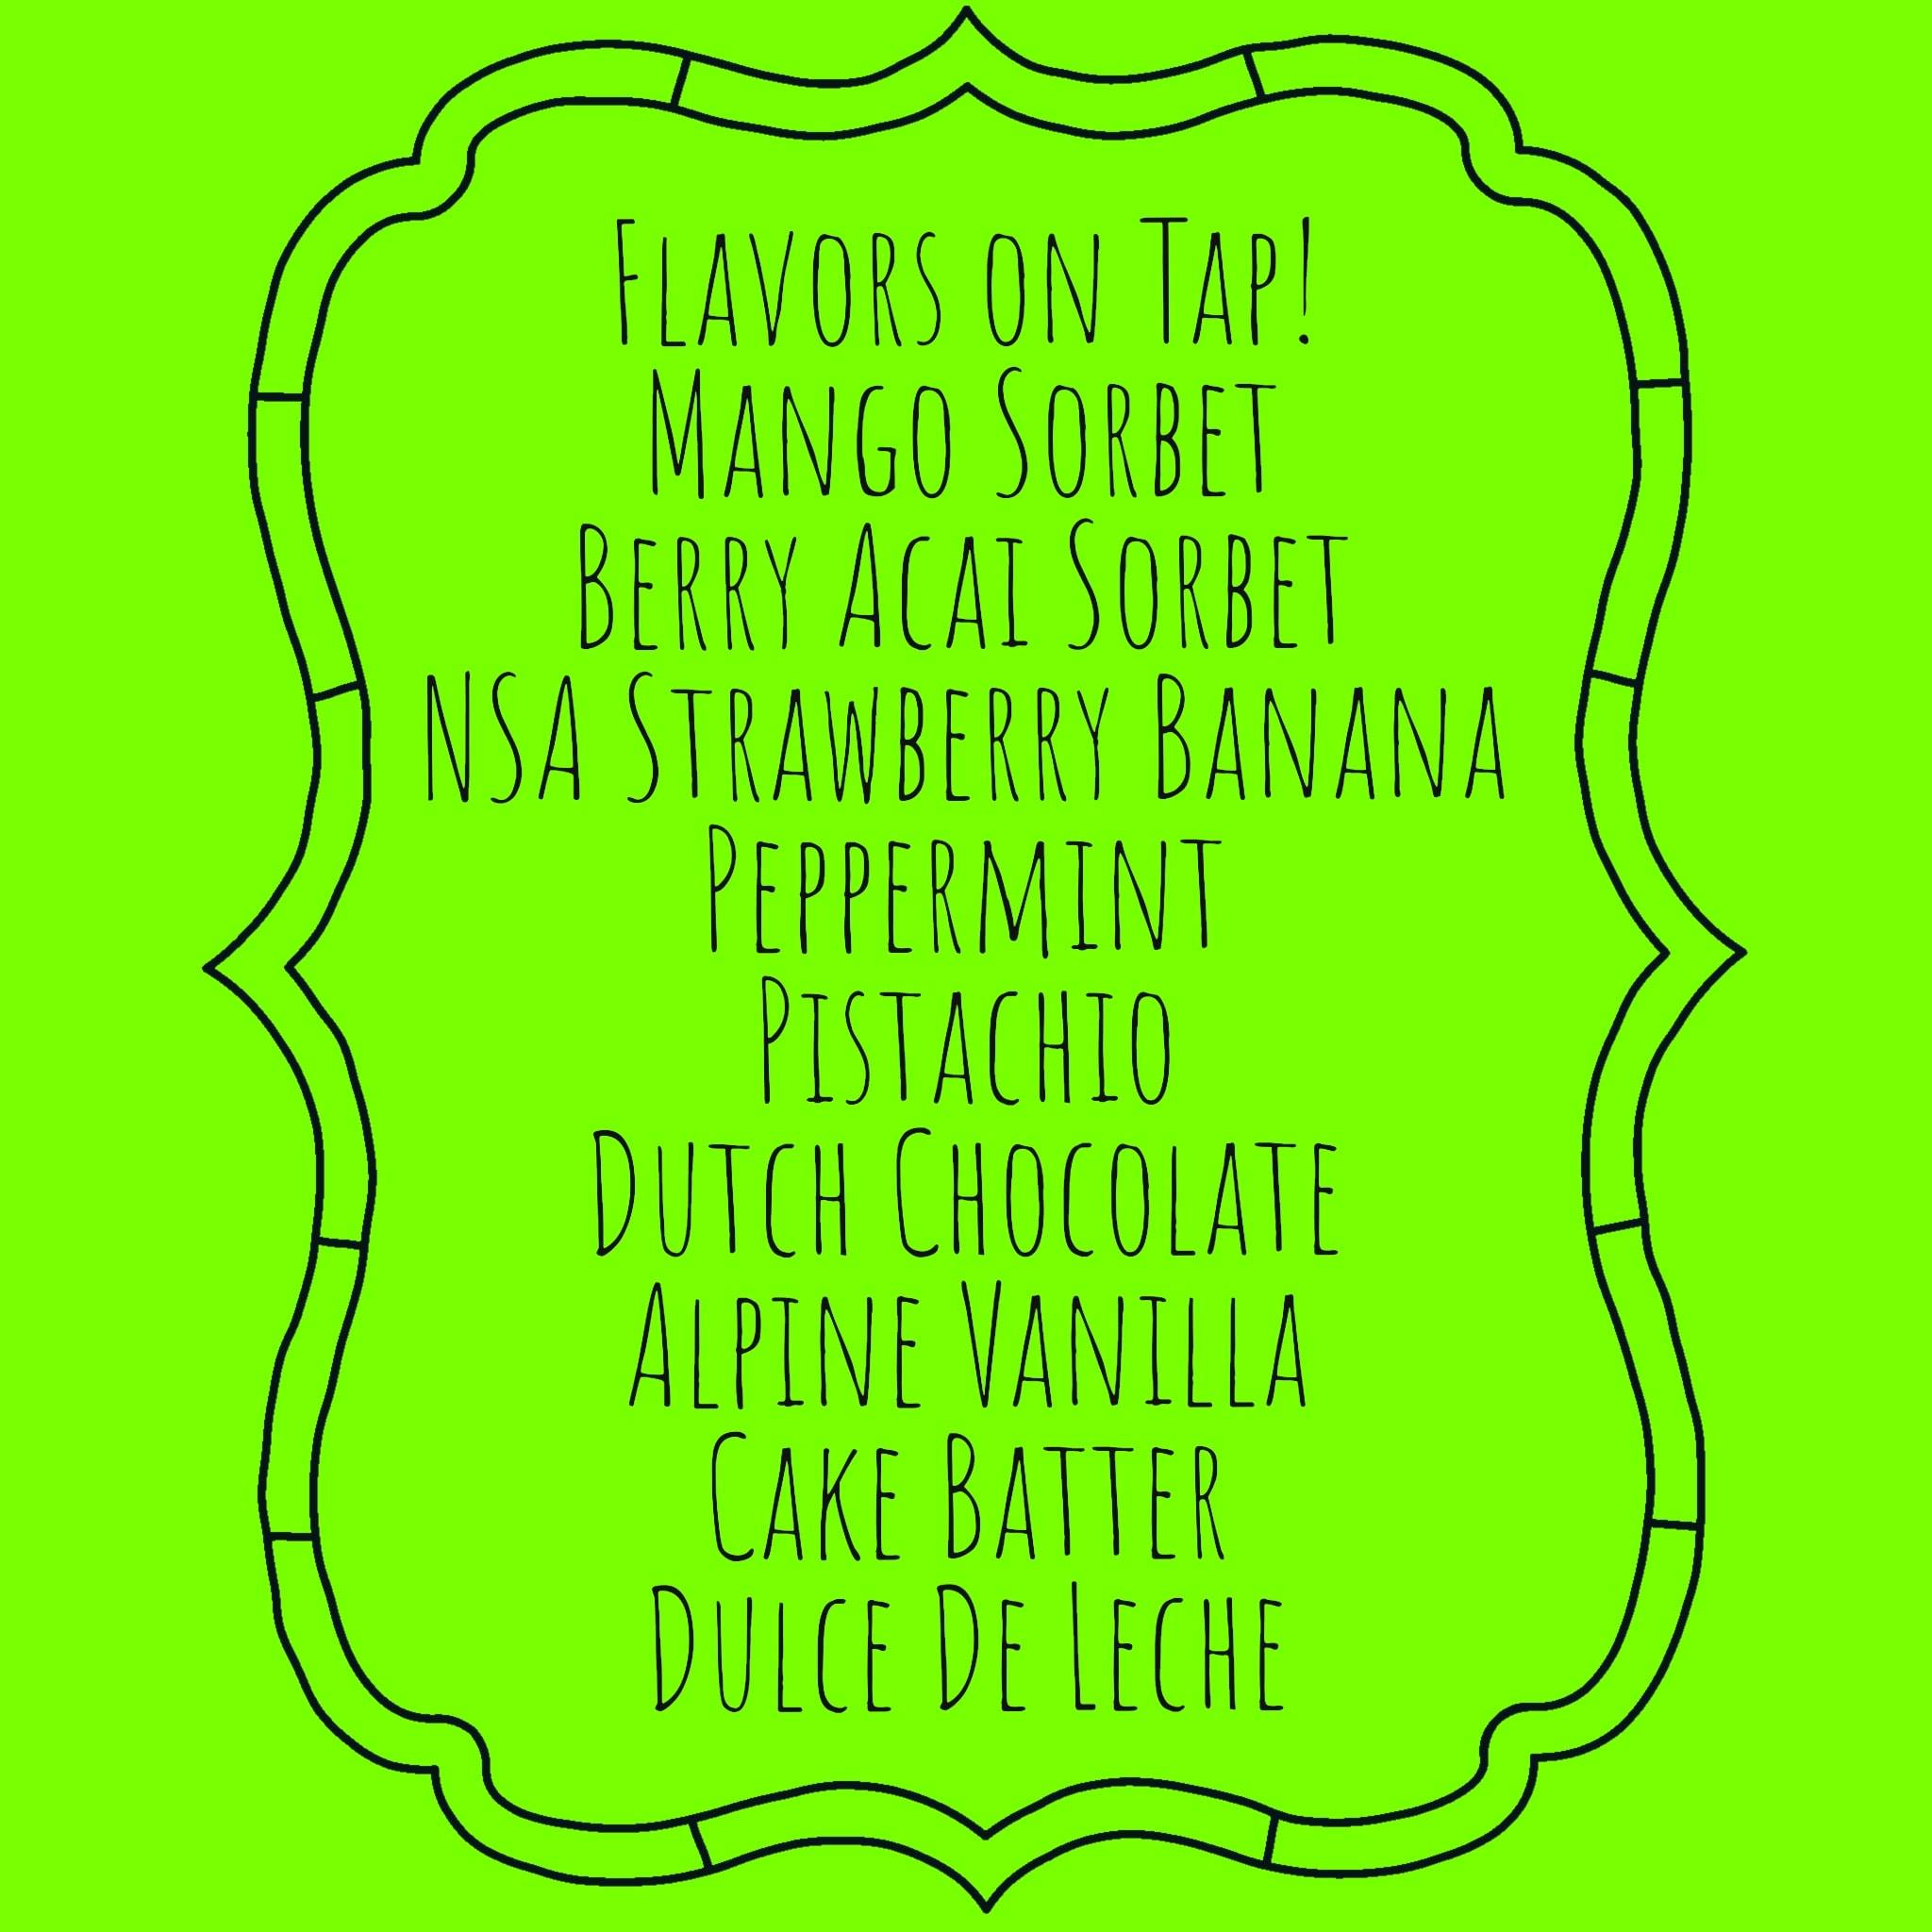 Flavors on Tap!
Mango Sorbet
Berry Acai Sorbet
NSA Strawberry Banana
Peppermint
Pistachio
Dutch Chocolate
Alpine Vanilla
Cake Batter
Dulce De Leche